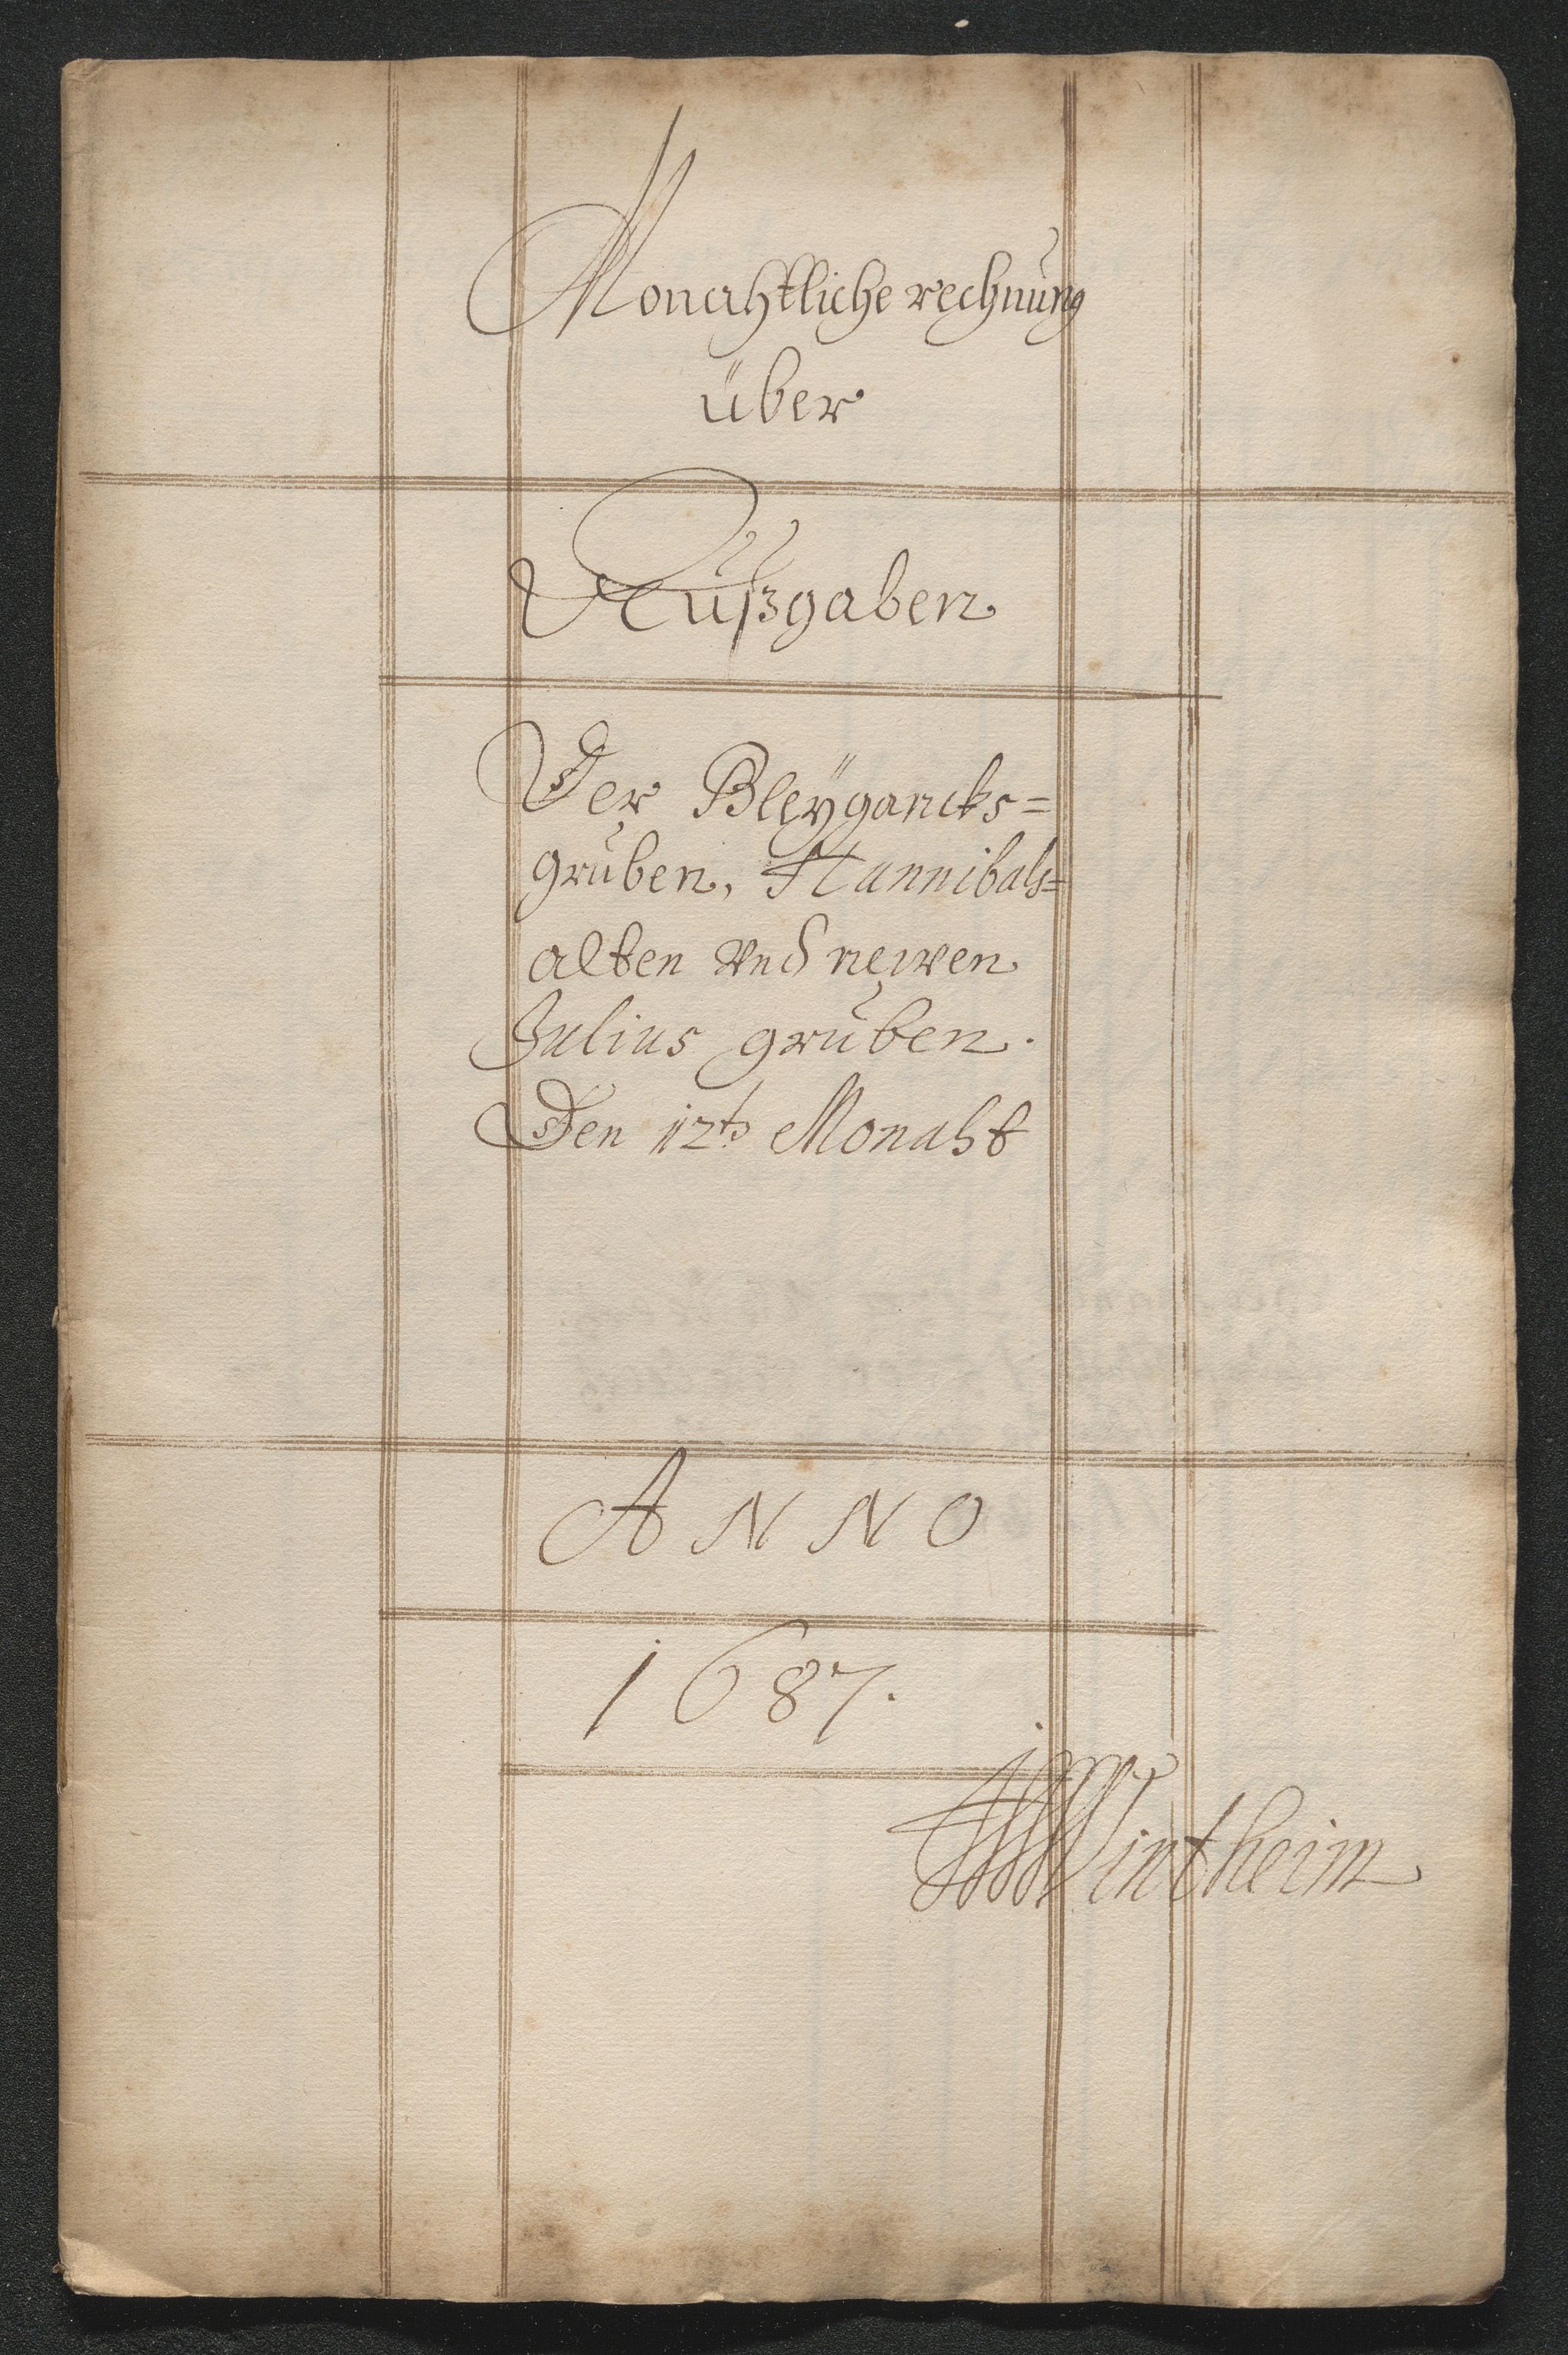 Monahtliche rechnung
über
Außgaben
Der Bleÿgancks=
gruben, Hannibals=
alten vnd newen
Julius gruben.
Den 12t Monaht
ANNO
1687.
Wintheim